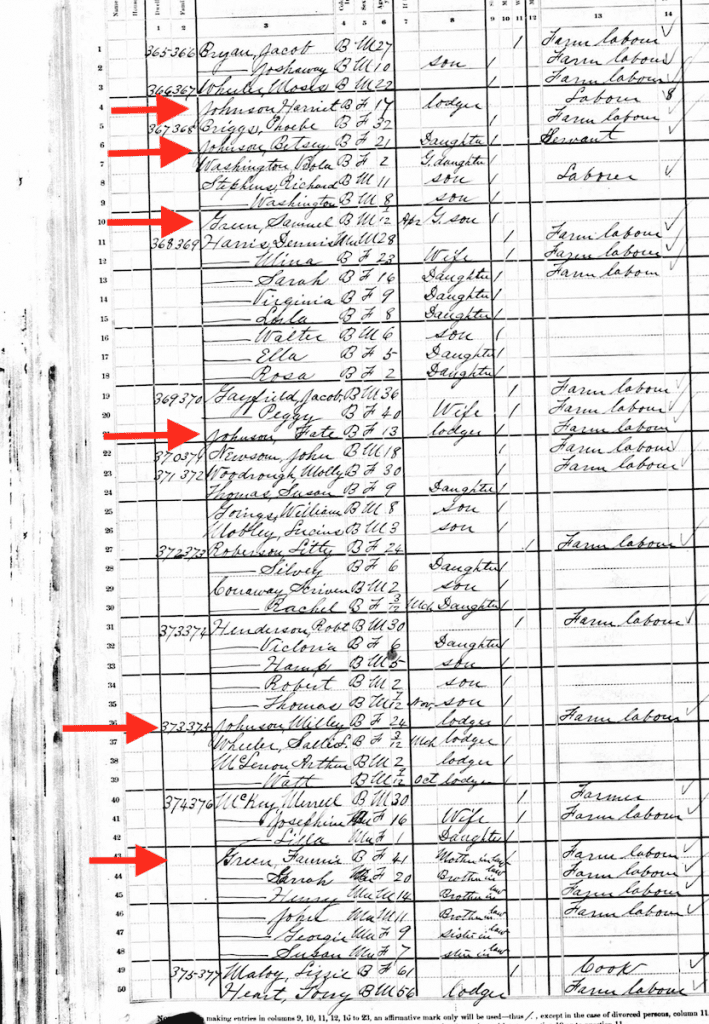 1 2 3 4 5 6 7 8 9 10 11 12 13 14
1 365 366 Bryan, Jacob B M 27 1 Farm labour
2 — Joshaway B M 10 son 1 Farm labour
3 366 367 Wheeler, Moses B M 22 1 Farm labour
4 Johnson, Harriet B F 17 lodger Labour 8
5 367 368 Briggs, Phoebe B F 37 Farm labour
6 Johnson, Betsey B F 21 Daughter 1 Servant
7 Washington, B F 2 G. daughter 1
8 Stephens, Richard B M 11 son 1 Laborer
9 — Washington B M 8 son 1
10 Green, Samuel B M /12 Apr G. son 1
11 368 369 Harris, Dennis Mu M 28 1 Farm labour
12 — Mina B F 23 Wife 1 Farm labour
13 — Sarah B F 16 Daughter 1 Farm labour
14 — Virginia B F 9 Daughter 1
15 — Lula B F 8 Daughter 1
16 — Walter B M 6 son 1
17 — Ella B F 5 Daughter 1
18 — Rosa B F 2 Daughter 1
19 369 370 Jacob B M 36 1 Farm labour
20 — Peggy B F 40 Wife 1 Farm labour
21 Johnson, Fate B F 13 lodger 1 Farm labour
22 370 371 Newsom, John B M 18 1 Farm labour
23 371 372 Woodrough, Molly B F 30 Farm labour
24 Thomas, Susan B F 9 Daughter 1
25 Goings, William B M 8 son 1
26 Mobley, Lucius B M 3 son 1
27 372 373 Roberson, Litty B F 24 1 Farm labour
28 — Silvey B F 6 Daughter 1
29 Conaway, Scriven B M 2 son 1
30 — Rachel B F 3/12 Mch Daughter 1
31 373 374 Henderson, Robt B M 30 1 Farm labour
32 — Victoria B F 6 Daughter 1
33 — Hamp B M 5 son 1
34 — Robert B M 2 son 1
35 — Thomas B M /12 Nov son 1
36 373 375 Johnson, Milley B F 24 lodger 1 Farm labour
37 Wheeler, Sallie B F 3/12 Mch lodger 1
38 McLenon Arthur B M 2 lodger 1
39 — Watt B M /12 Oct lodger 1
40 374 376 McKey, Merrell B M 30 1 Farmer
41 — Josephine Mu F 16 Wife 1 Farm labour
42 — Lilla Mu F 1 Daughter 1
43 Green, Fannie B F 41 Mother in law Farm labour
44 — Sarah Mu F 20 Brother in law Farm labour
45 — Henry Mu M 14 Brother in law Farm labour
46 — John Mu M 11 Brother in law Farm labour
47 — Georgie Mu F 9 sister in law
48 — Susan Mu F 7 in law
49 375 377 Maloy, Lizzie B F 61 1 Cook
50 Heart, Tony B M 56 lodger Farm labour
making entries in columns 9, 10, 11, 12, 16 to 23, an affirmative mark only will be used—thus /, except in the case of divorced persons, column 11,